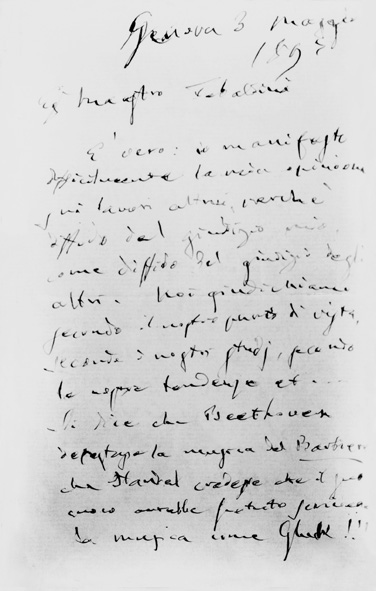 Genova 3 maggio
189
Eg. Maestro Tebaldini
E' vero: io manifesto
difficilmente la mia opinione
sui lavori altrui, perchè
diffido del giudizio mio,
come diffido del giudizio degli
altri. Noi giudichiamo
secondo il nostro punto di vista,
secondo i nostri studj, secondo
le nostre tendenze et ....
Si dice che Beethoven
la musica del Barbiere
che Handel credesse che il suo
cuoco avrebbe potuto scrivere
la musica come Gluck !!!